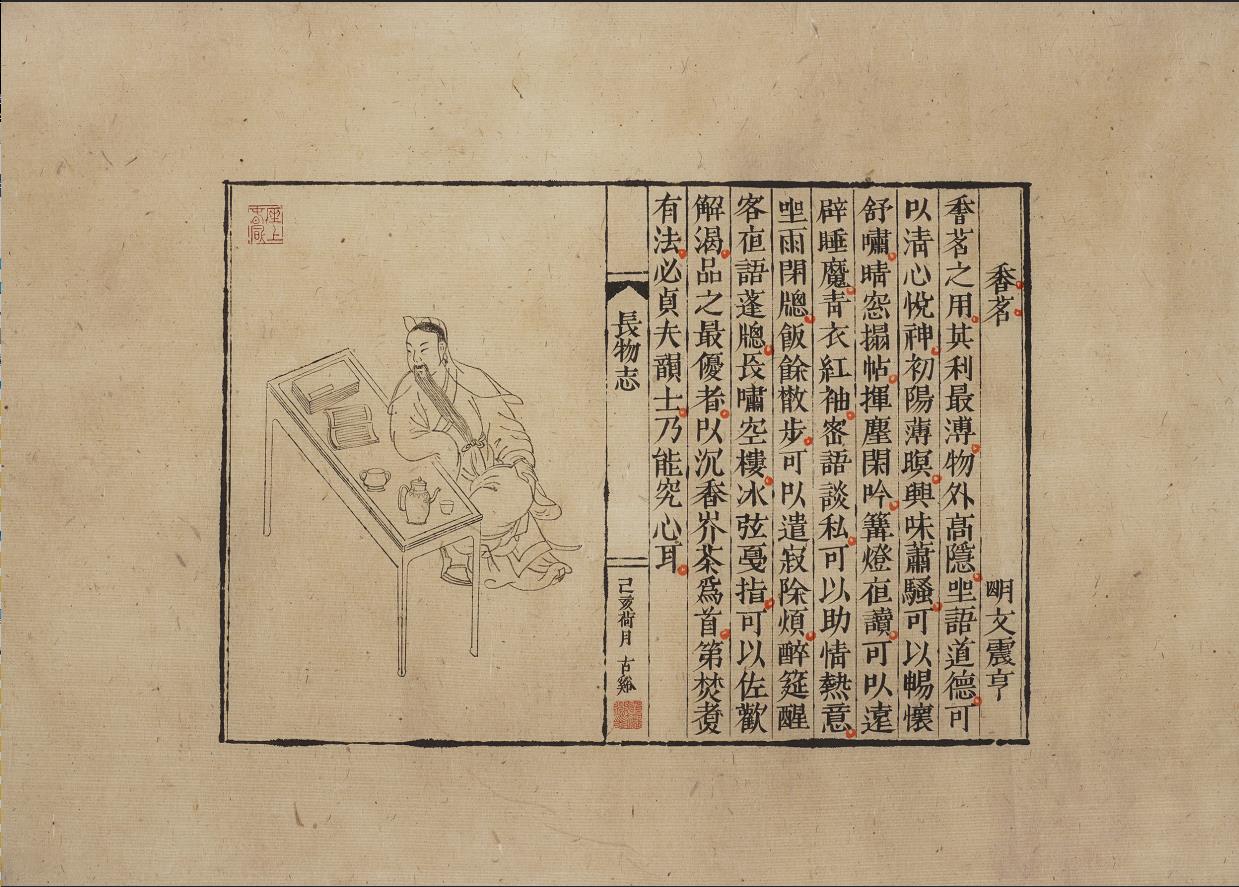 香茗 明文震亨
香茗之用其利最溥物外高隱坐語道德可
以清心悅神初陽薄暝興味蕭騷可以暢懷
舒嘯晴窓搨帖揮麈閑吟篝燈夜讀可以遠
辟睡魔青衣紅袖密語談私可以助情熱意
坐雨閉牕飯餘散步可以遣寂除煩醉筵醒
客夜語蓬牕長嘯空樓冰弦戛指可以佐歡
解渴品之最優者以沉香岕茶爲首第焚煮
有法必貞夫韻士乃能究心耳
長物志
己亥荷月 古谿